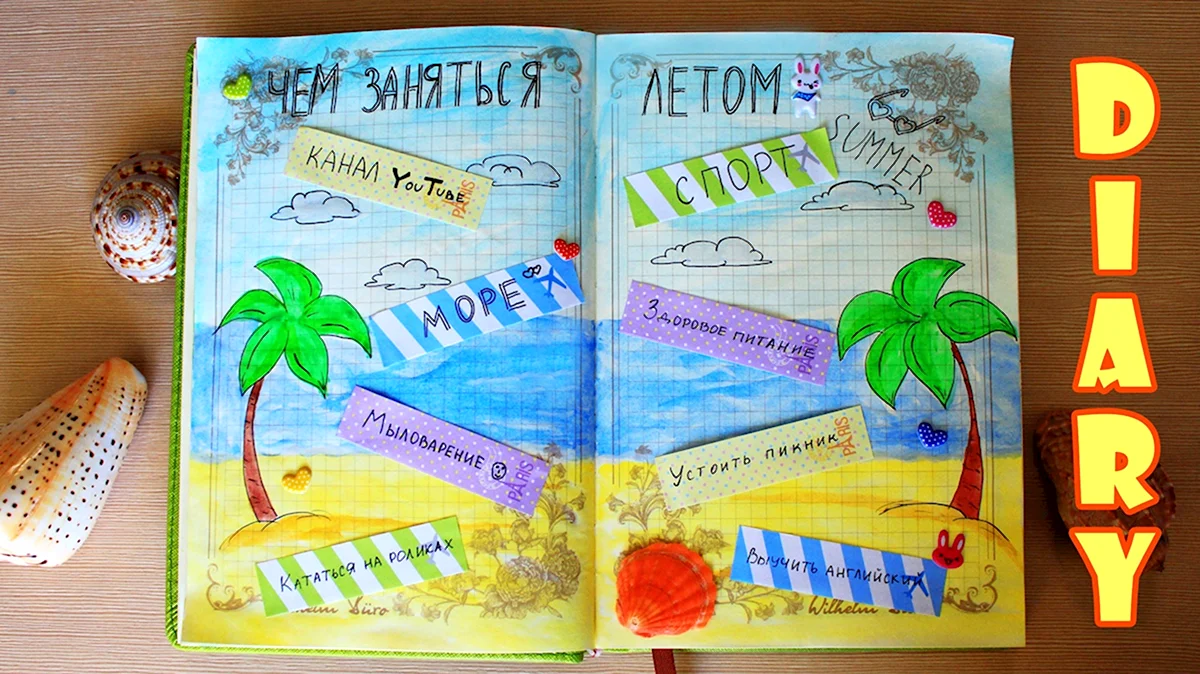 ЧЕМ ЗАНЯТЬСЯ ЛЕТОМ
SUMMER
КАНАЛ YOUTUBE
PARIS
СПОРТ
МОРЕ
ЗДОРОВОЕ ПИТАНИЕ
PARIS
МЫЛОВАРЕНИЕ
PARIS
УСТОИТЬ ПИКНИК
PARIS
КАТАТЬСЯ НА РОЛИКАХ
ВЫУЧИТЬ АНГЛИЙСКИЙ
Wilhelm
DIARY